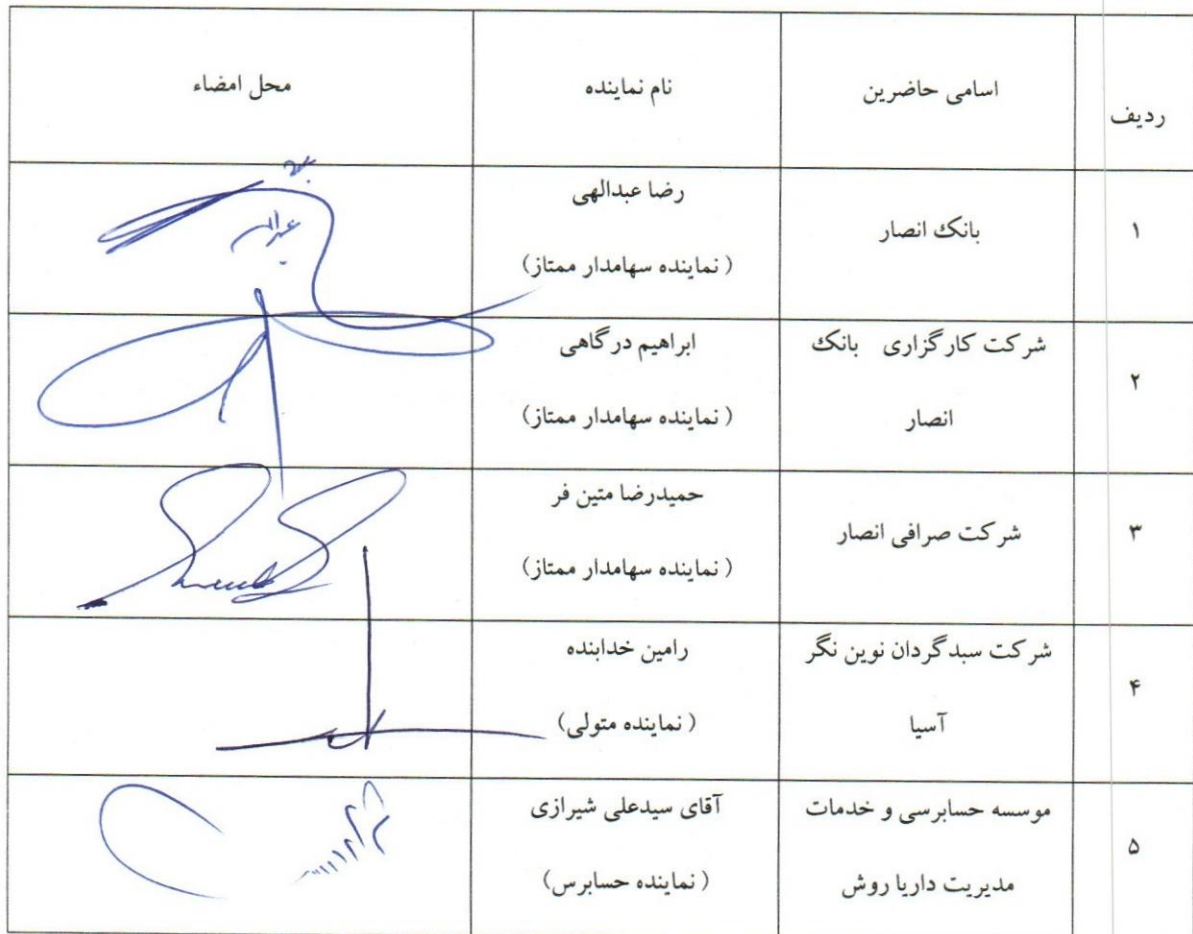 ردیف
اسامی حاضرین
نام نماینده
محل امضاء
۱
بانک انصار
رضا عبدالهی
( نماینده سهامدار ممتاز)
۲
شرکت کارگزاری بانک
انصار
ابراهیم درگاهی
( نماینده سهامدار ممتاز)
۳
شرکت صرافی انصار
حمیدرضا متین فر
( نماینده سهامدار ممتاز)
۴
شرکت سبدگردان نوین نگر
آسیا
رامین خدابنده
( نماینده متولی)
۵
موسسه حسابرسی و خدمات
مدیریت داریا روش
آقای سیدعلی شیرازی
( نماینده حسابرس)